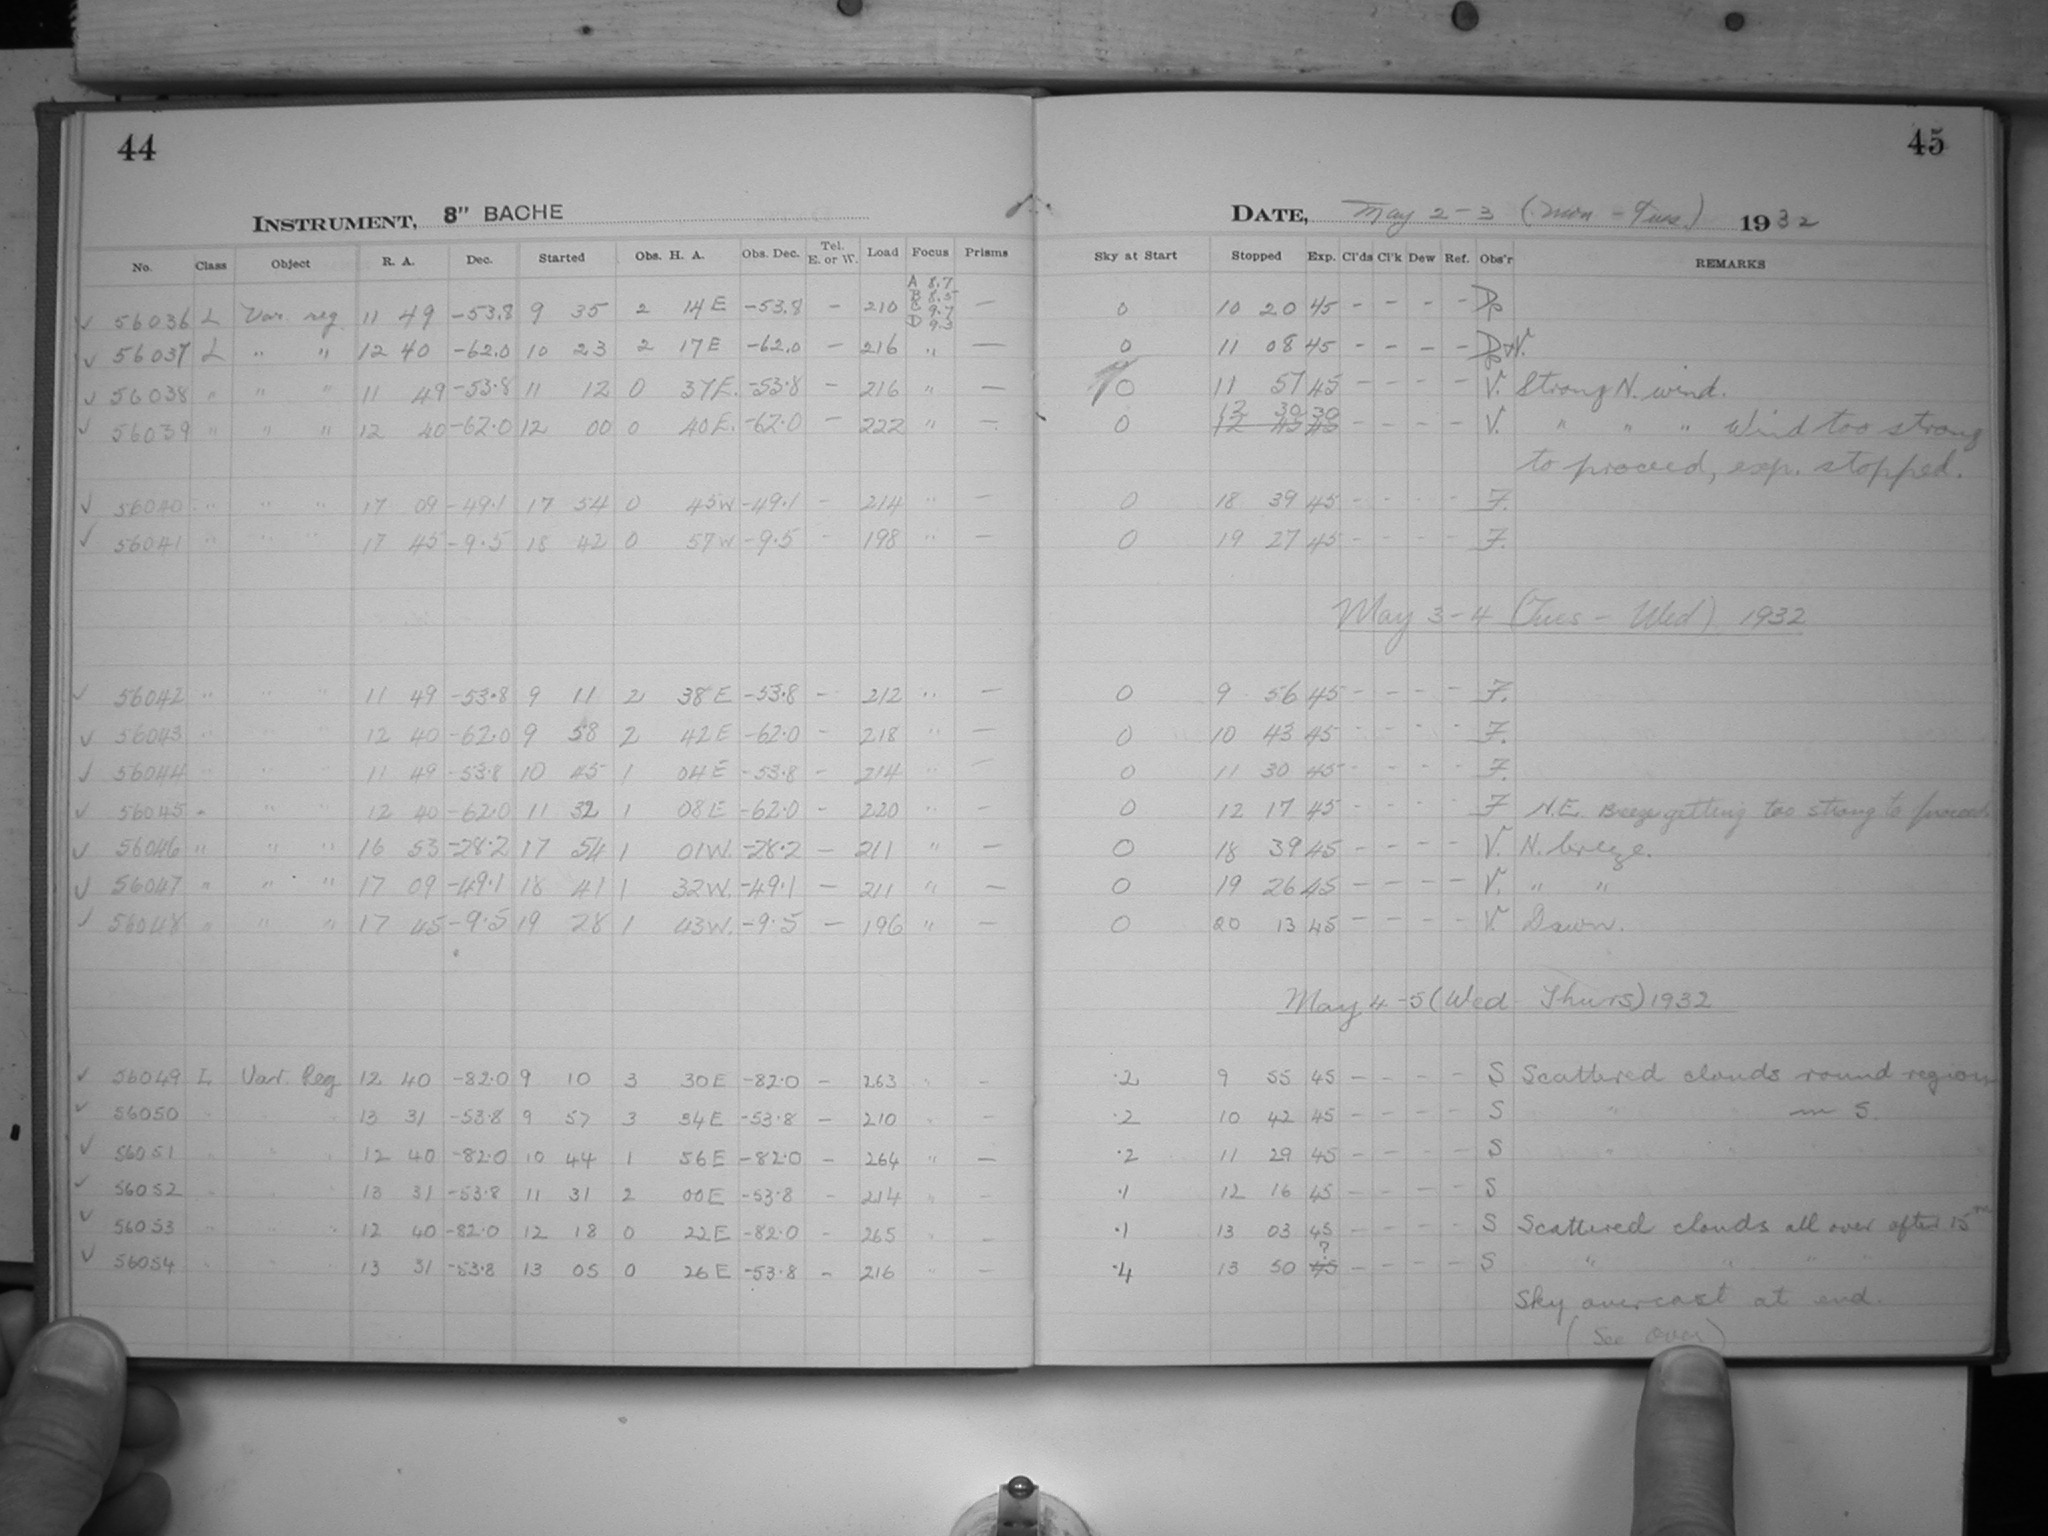 44
INSTRUMENT, 8" BACHE
No. Class Object R. A. Dec. Started Obs. H. A. Obs. Dec. Tel. E. or W. Load Focus Prisms
A 8.7
B 8.5
C 9.7
D 9.3
✓ 56036 L Var. reg. 11 49 -53.8 9 35 2 14 E -53.8 - 210 —
✓ 56037 L " " 12 40 -62.0 10 23 2 17 E -62.0 - 216 " —
✓ 56038 " " " 11 49 -53.8 11 12 0 37 E. -53.8 - 216 " —
✓ 56039 " " " 12 40 -62.0 12 00 0 40 E. -62.0 - 222 " —
✓ 56040 " " " 17 09 -49.1 17 54 0 45 W -49.1 - 214 " —
✓ 56041 " " " 17 45 -9.5 18 42 0 57 W -9.5 - 198 " —
✓ 56042 " " " 11 49 -53.8 9 11 2 38 E -53.8 - 212 " —
✓ 56043 " " " 12 40 -62.0 9 58 2 42 E -62.0 - 218 " —
✓ 56044 " " " 11 49 -53.8 10 45 1 04 E -53.8 - 214 " —
✓ 56045 " " " 12 40 -62.0 11 32 1 08 E -62.0 - 220 " —
✓ 56046 " " " 16 53 -28.2 17 54 1 01 W. -28.2 - 211 " —
✓ 56047 " " " 17 09 -49.1 18 41 1 32 W. -49.1 - 211 " —
✓ 56048 " " " 17 45 -9.5 19 28 1 43 W. -9.5 - 196 " —
✓ 56049 L Var. Reg 12 40 -82.0 9 10 3 30 E -82.0 - 263 " —
✓ 56050 " " " 13 31 -53.8 9 57 3 34 E -53.8 - 210 " —
✓ 56051 " " " 12 40 -82.0 10 44 1 56 E -82.0 - 264 " —
✓ 56052 " " " 13 31 -53.8 11 31 2 00 E -53.8 - 214 " —
✓ 56053 " " " 12 40 -82.0 12 18 0 22 E -82.0 - 265 " —
✓ 56054 " " " 13 31 -53.8 13 05 0 26 E -53.8 - 216 " —
45
DATE, May 2-3 (Mon - Tues.) 1932
Sky at Start Stopped Exp. Cl'ds Cl'k Dew Ref. Obs'r REMARKS
0 10 20 45 - - - -
0 11 08 45 - - - -
0 11 57 45 - - - - V. Strong N. wind.
12 30 30
0 12 45 45 - - - - V. " " " Wind too strong
to proceed, exp. stopped.
0 18 39 45 - - - - F.
0 19 27 45 - - - - F.
May 3-4 (Tues - Wed) 1932
0 9 56 45 - - - - F.
0 10 43 45 - - - - F.
0 11 30 45 - - - - F.
0 12 17 45 - - - - F N.E. Breeze getting too strong to proceed
0 18 39 45 - - - - V. N. breeze.
0 19 26 45 - - - - V. " "
0 20 13 45 - - - - V. Dawn.
May 4-5 (Wed - Thurs) 1932
.2 9 55 45 - - - - S Scattered clouds round region
.2 10 42 45 - - - - S " in S.
.2 11 29 45 - - - - S "
.1 12 16 45 - - - - S
.1 13 03 45 - - - - S Scattered clouds all over after 15m
?
.4 13 50 45 - - - - S " " " "
Sky overcast at end.
(See over)